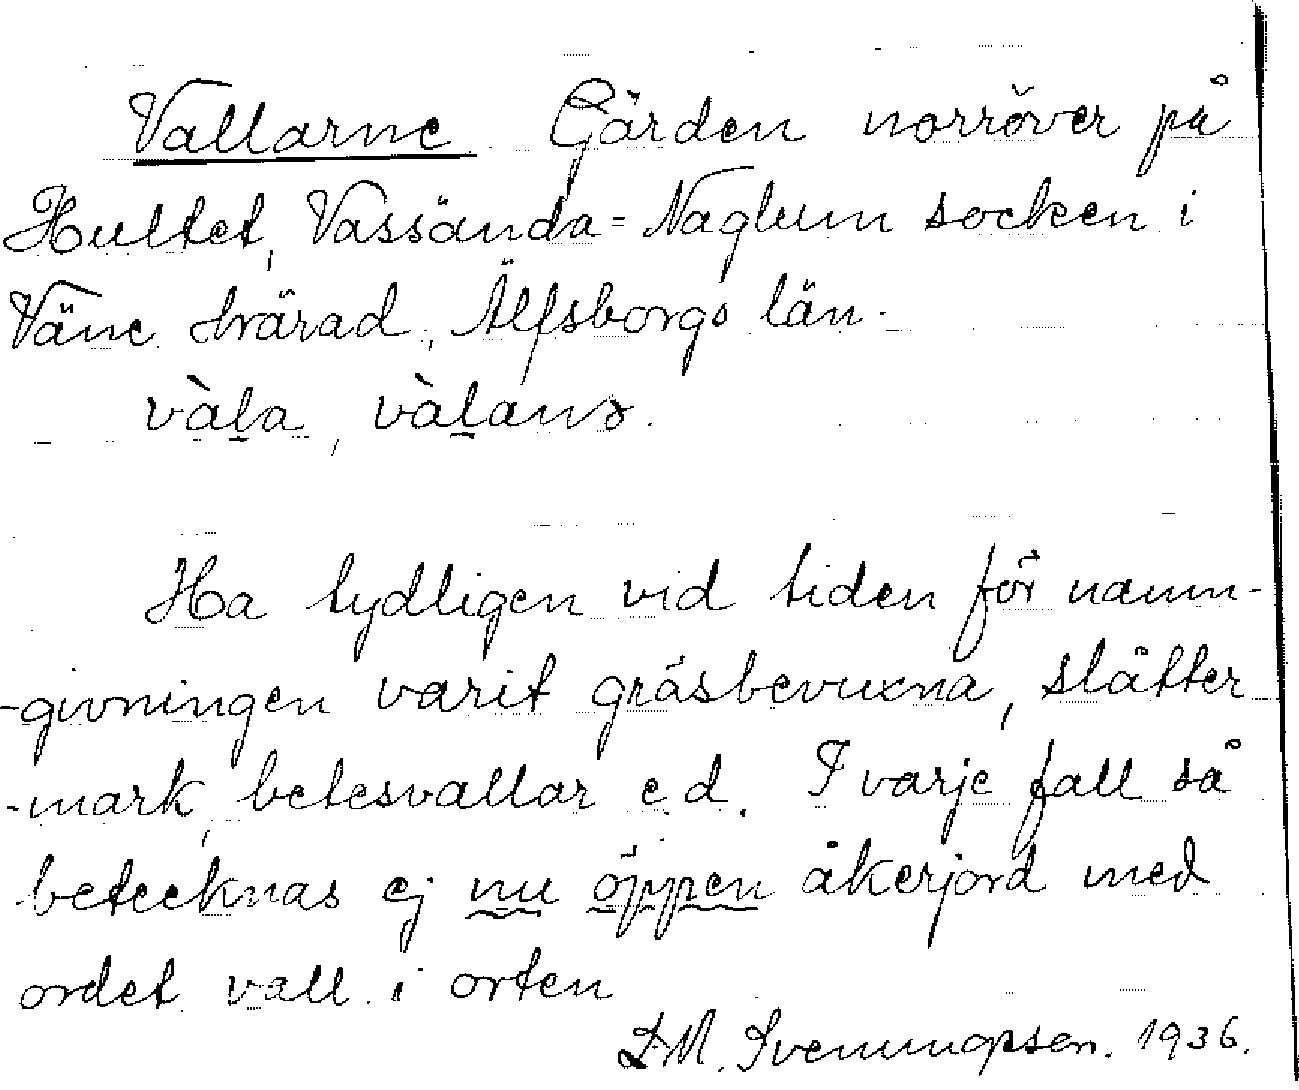 Vallarne Gärden norröver på
Hultet, Vassända=Naglum socken i
Väne härad, Älfsborgs län.
vàla, vàlanɤ.
Ha tydligen vid tiden för namn-
-givningen varit gräsbevuxna, slåtter
-mark, betesvallar e.d. I varje fall så
betecknas ej nu öppen åkerjord med
ordet vall i orten
D.M. Svenungsson. 1936.